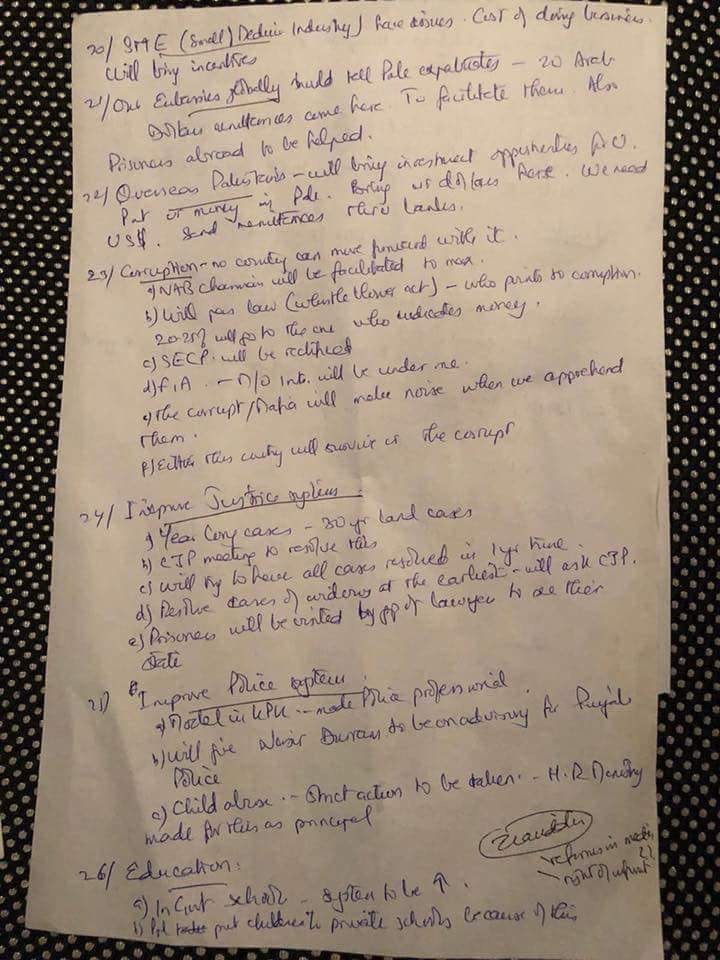 20/ SME (Small) Medium Industry) have issues. Cost of doing business.
Will bring incentives
21/ Our Embassies globally should tell Pak expatriates – 20 Arab
Dollars remittances come here. To facilitate them. Also
Prisoners abroad to be helped.
22/ Overseas Pakistanis – will bring investment opportunities for U.
Put money in Pak. Bring us dollars here. We need
US$. Send remittances thru banks.
23/ Corruption – no country can move forward with it.
a) NAB Chairman will be facilitated to max.
b) Will pass law (whistle blower act) – who points to corruption.
20-25% will go to the one who indicates money.
c) SECP. will be rectified
d) FIA. – M/O Int. will be under me.
e) The corrupt/Mafia will make noise when we apprehend
them.
f) Either this country will survive or the corrupt
24/ Improve Justice system.
a) Year long cases – 30 yr land cases
b) CJP meeting to resolve this
c) Will try to have all cases resolved in 1 yr time.
d) Resolve cases of widows at the earliest – will ask CJP.
e) Prisoners will be visited by gp of lawyers to see their
state
25) Improve Police system.
a) Model in KPK – made Police professional.
b) Will give Nasir Durrani to be on advisory for Punjab
Police
c) Child abuse – Strict action to be taken. – H.R Ministry
made for this as principal
reforms in media
right of
26/ Education:
a) In Gvt schools – system to be ↑.
b) Ppl put children in private schools because of this